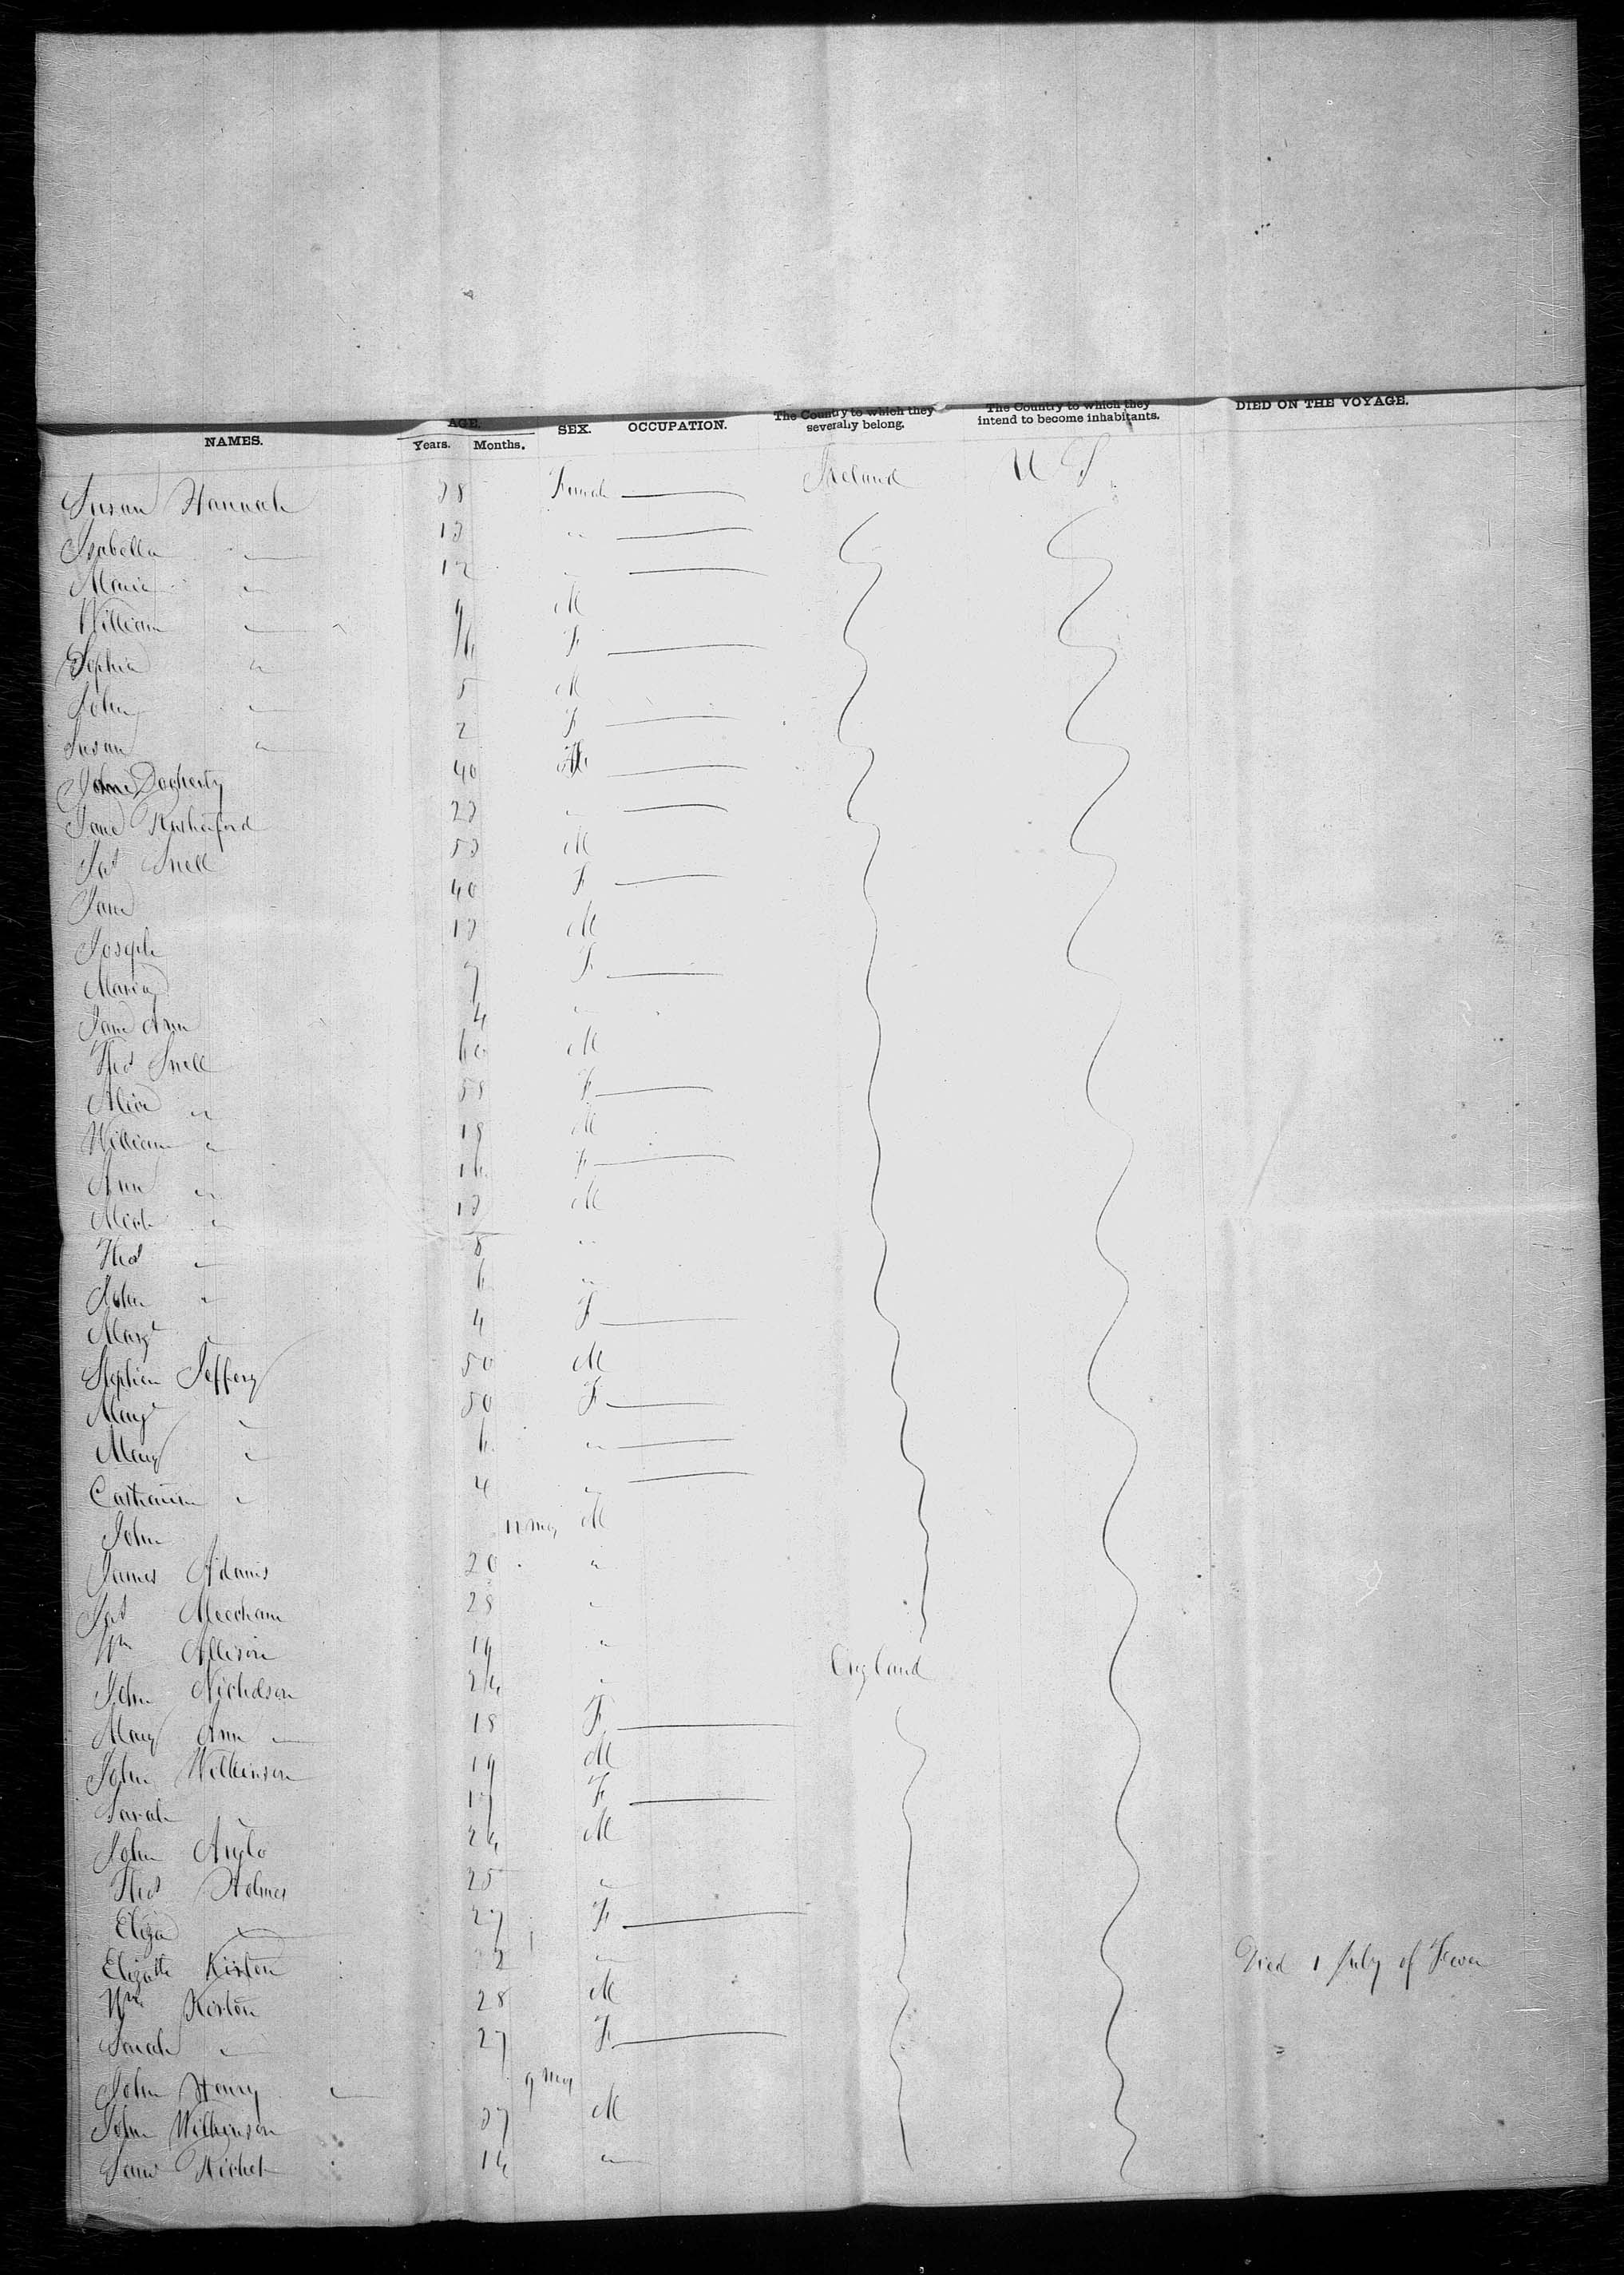 NAMES. AGE. Years. Months. SEX. OCCUPATION. The Country to which they severally belong. The Country to which they intend to become inhabitants. DIED ON THE VOYAGE.
Susan Hannah 38 Female Ireland U S
Isabella " 13 "
Maria " 12 "
William " 9 M
Sophia " F
John " 5 M
Susan " 2 F
Docherty 40
Jane Rutherford 23 "
Jas Snell 53 M
Jane 40 F
Joseph 13 M
Maria 7 F
Jane Ann 4 "
Thos Snell 60 M
Alice " 58 F
William " 18 M
Ann " 16 F
" 13 M
Thos " 8 "
John " 6 "
Margt " 4 F
Stephen Jeffery 50 M
Margt " 50 F
Mary " 6 "
" 4 "
John 11 mos M
James Adams 20 "
Jas Meecham 28 "
Wm Allison 19 "
John Nicholson 24 " England
Mary Ann " 18 F
John Wilkinson 19 M
Sarah " 17 F
John 24 M
Thos Holmes 25 "
Eliza " 27 F
Elizabth Kirton "  Died 1 July of Fever
Wm Kirton 28 M
Sarah " 27 F
John Henry " 9 mos
John Wilkinson 37 M
"